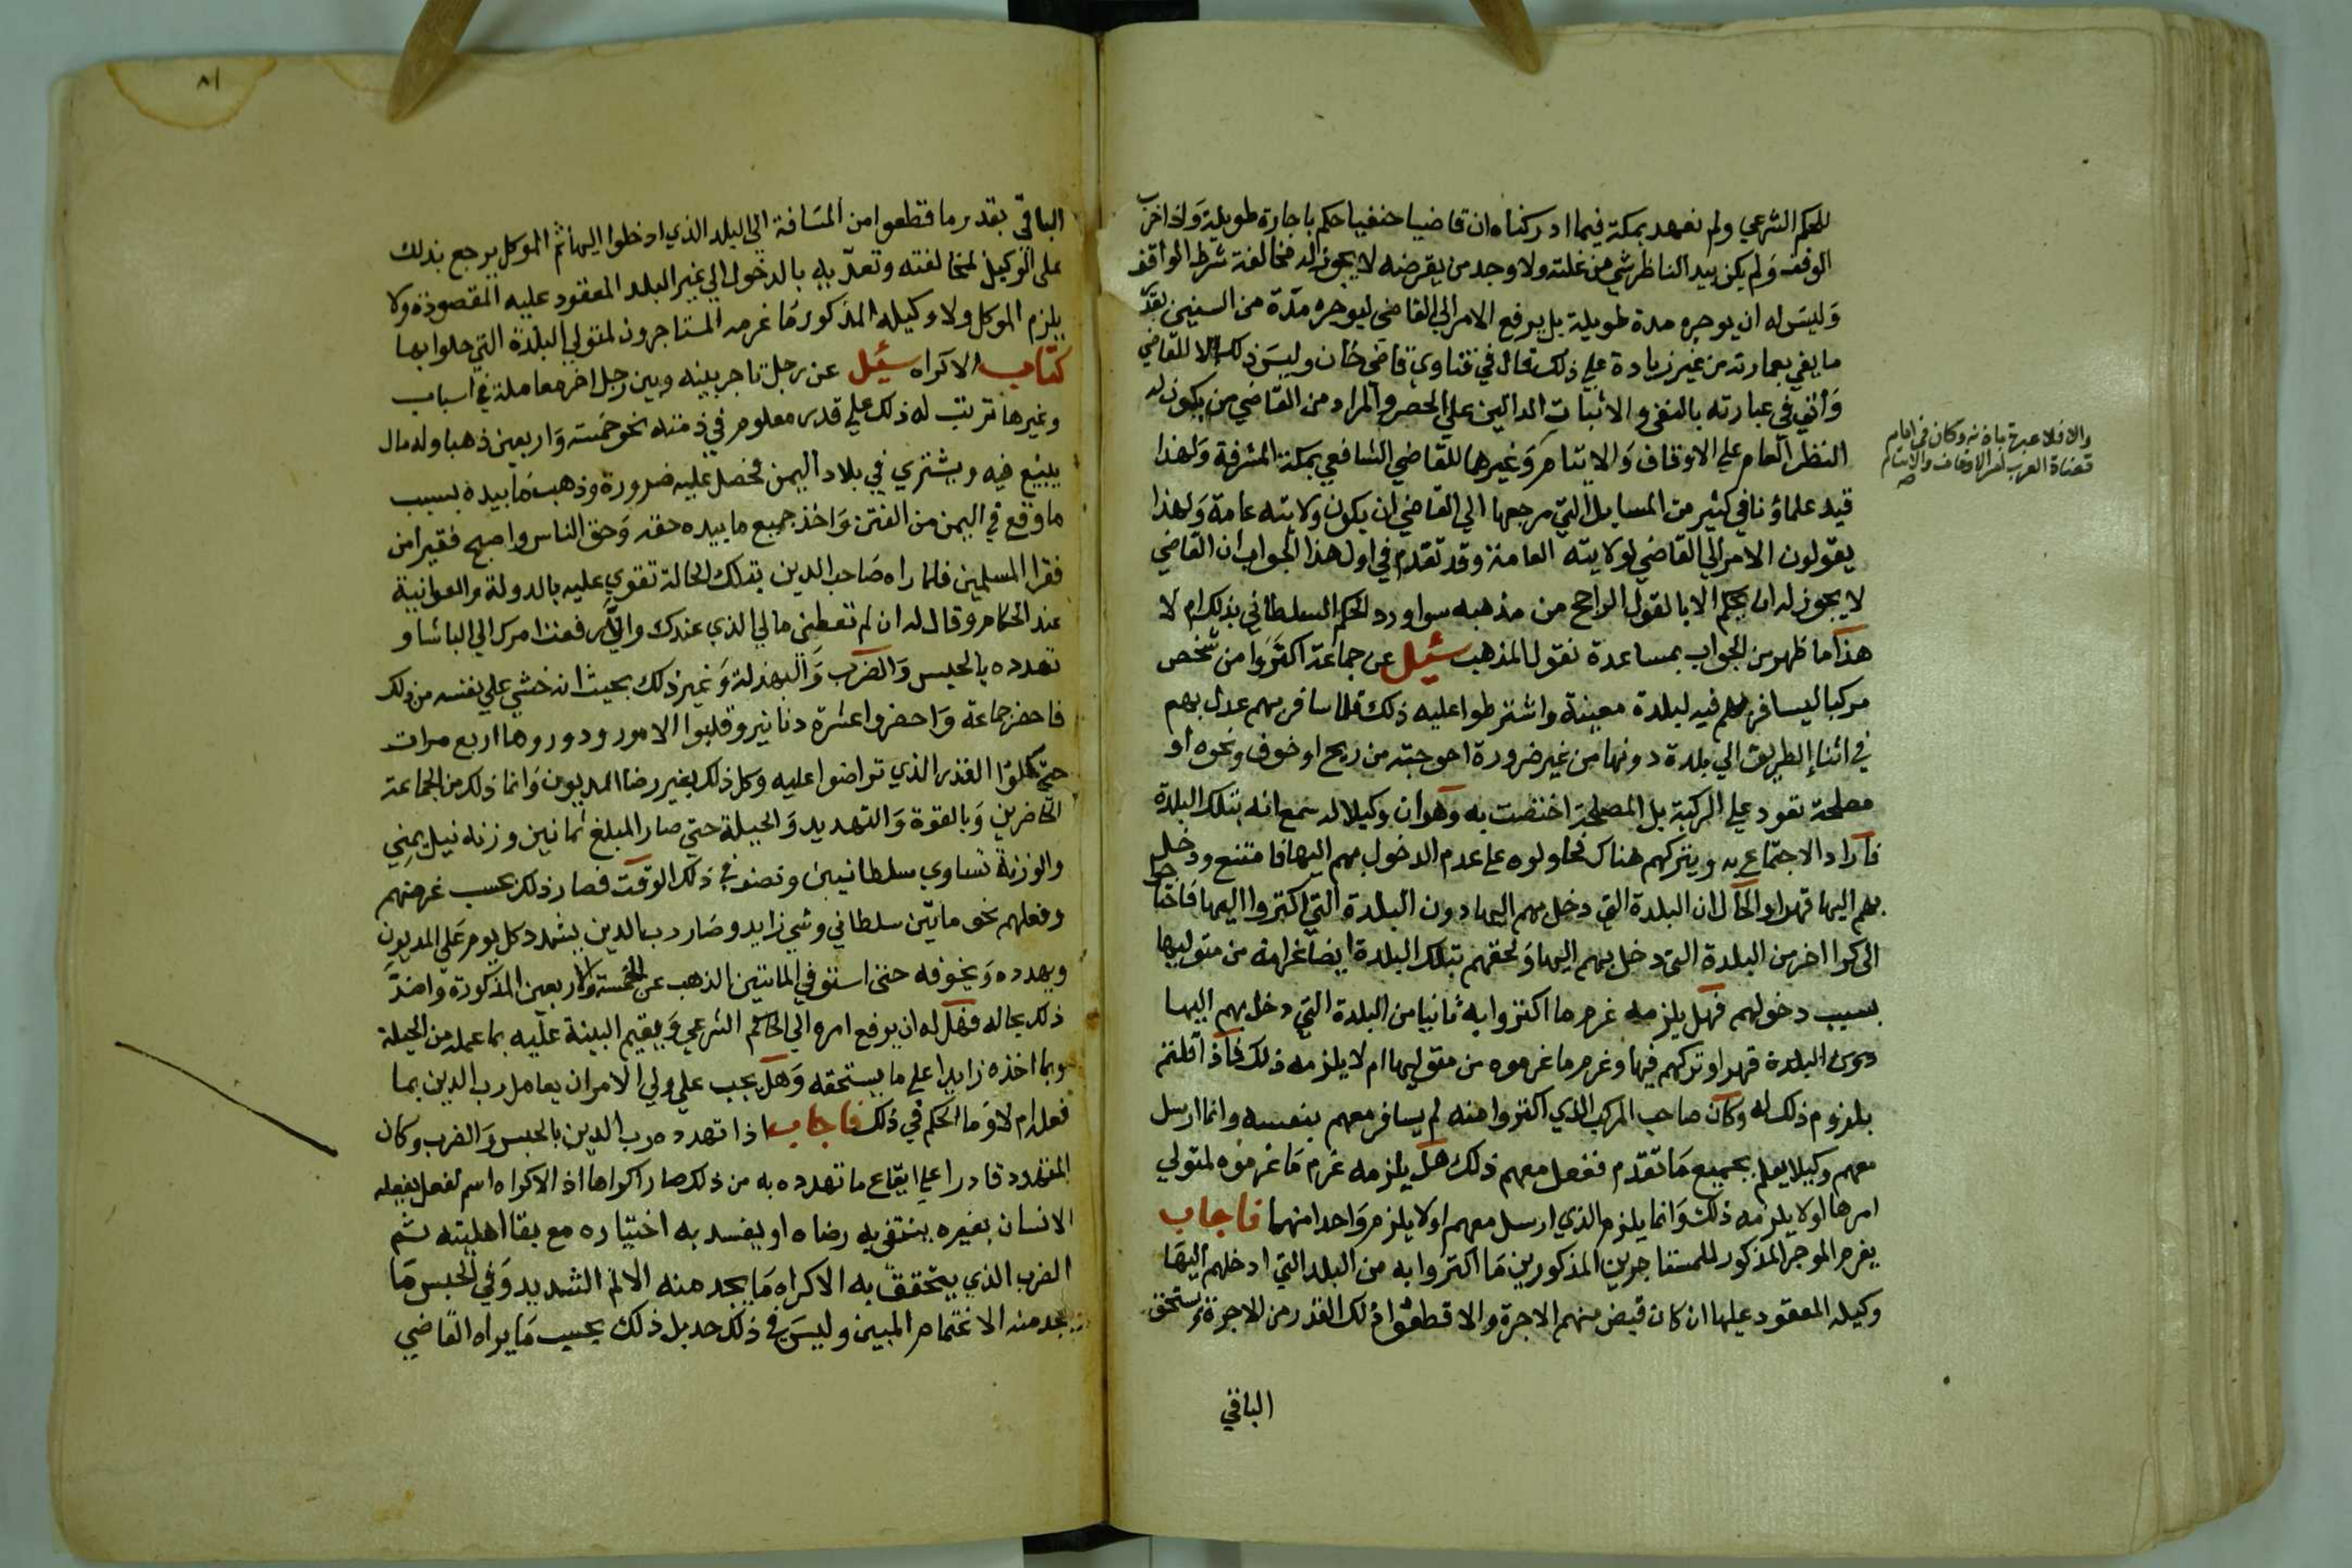 للحكم الشرعي ولم نعهد بمكة فيما ادركناه ان قاضيا حنفيا حكم باجارة طويلة واذا خرب
الوقف ولم يكن بيد الناظر شي من غلته ولا وجد من يقرضه لا يجوز له مخالفة شرط الواقف
وليس له ان يوجره مدة طويلة بل يرفع الامر الي القاضي ليوجره مدة من السنين بقدر
ما يفي بعمارته من غير زيادة علي ذلك قال في فتاوي قاضي خان وليس ذلك الا للقاضي
وأتي في عبارته بالنفي والاثبات الدالين علي الحصر والمراد من القاضي من يكون له
النظر العام علي الاوقاف والايتام وغيرهما للقاضي الشافعي بمكة المشرفة ولهذا
والا فلا عبرة باذنه وكان في ايام
قضاة العرب نظر الاوقاف والايتام
قيد علماؤنا في كثير من المسايل التي مرجعها الي القاضي ان يكون ولايته عامة ولهذا
يقولون الامر الي القاضي لولايته العامة وقد تقدم في اول هذا الجواب ان القاضي
لا يجوز له ان يحكم الا بالقول الراجح من مذهبه سوا ورد الحكم السلطاني بذلك ام لا
هذا ما ظهر من الجواب بمساعدة نقول المذهب سئيل عن جماعة اكتروا من شخص
مركبا ليسافر بهم فيه لبلدة معينة واشترطوا عليه ذلك فلما سافر بهم عدل بهم
في اثنا الطريق الي بلدة دونها من غير ضرورة احوجته من ريح او خوف ونحوه او
مصلحة تعود علي الركبة بل المصلحة اختصت به وهو ان وكيلا له سمع انه بتلك البلدة
فاراد الاجتماع به ويتركهم هناك فحاولوه علي عدم الدخول بهم اليها فامتنع ودخل
بهم اليها قهرا والحال ان البلدة التي دخل بهم اليها دون البلدة التي اكتروا اليها فاحتاجوا
الي كرا اخر من البلدة التي دخل بهم اليها ولحقهم بتلك البلدة ايضا غرامة من متوليها
بسبب دخولهم فهل يلزمه غرم ما اكتروا به ثانيا من البلدة التي دخل بهم اليها
دون البلدة قهرا وتركهم فيها وغرم ما غرموه من متوليها ام لا يلزمه ذلك فاذا قلتم
بلزوم ذلك له وكان صاحب المركب الذي اكتروا منه لم يسافر معهم بنفسه وانما ارسل
معهم وكيلا يعلم بجميع ما تقدم ففعل معهم ذلك هل يلزمه غرم ما غرموه لمتولي
امرها اولا يلزمه ذلك وانما يلزم الذي ارسل معهم اولا يلزم واحدا منهما فاجاب
يغرم الموجر المذكور للمستاجرين المذكورين ما اكتروا به من البلد التي ادخلهم اليها
وكيله المعقود عليها ان كان قبض منهم الاجرة والا قطعوا ذلك القدر من الاجرة ويستحق
الباقي
٨١
الباقي بقدر ما قطعوا من المسافة الي البلد الذي ادخلوا اليها ثم الموكل يرجع بذلك
علي الوكيل لمخالفته وتعديه بالدخول الي غير البلد المعقود عليه المقصودة ولا
يلزم الموكل ولا وكيله المذكور ما غرمه المستاجرون لمتولي البلدة التي حلوا بها
كتاب الاكراه سئيل عن رجل تاجر بينه وبين رجل اخر معاملة في اسباب
وغيرها ترتب له ذلك علي قدر معلوم في ذمته نحو خمسة واربعين ذهبا وله مال
يبيع فيه ويشتري في بلاد اليمن فحصل عليه ضرورة وذهب ما بيده بسبب
ما وقع في اليمن من الفتن واخذ جميع ما بيده حقه وحق الناس واصبح فقيرا من
فقرا المسلمين فلما راه صاحب الدين بتلك الحالة تقوي عليه بالدولة والعوانية
عند الحكام وقال له ان لم تعطني مالي الذي عندك والا رفعت امرك الي الباشا و
تهدده بالحبس والضرب والبهذلة وغير ذلك بحيث انه خشي علي نفسه من ذلك
فاحضر جماعة واحضروا عشرة دنانير وقلبوا الامور ودوروها اربع مرات
حتي كملوا القدر الذي تراضوا عليه وكل ذلك بغير رضا المديون وانما ذلك من الجماعة
الحاضرين وبالقوة والتهديد والحيلة حتي صار المبلغ ثمانين وزنه نيل يمني
والوزنة تساوي سلطانيين ونصف في ذلك الوقت فصار ذلك بحسب غرضهم
وفعلهم نحو مايتين سلطاني وشي زايد وصار رب الدين يشدد كل يوم علي المديون
ويهدده ويخوفه حتي استوفي المايتين الذهب عن الخمسة والاربعين المذكورة واخذ
ذلك بحاله فهل له ان يرفع امره الي الحاكم الشرعي ويقيم البينة عليه بما عمله من الحيلة
وبما اخذه زايدا علي ما يستحقه وهل يجب علي ولي الامر ان يعامل رب الدين بما
فعل ام لا وما الحكم في ذلك فاجاب اذا تهدده رب الدين بالحبس والضرب وكان
المتهدد قادرا علي ايقاع ما تهدده به من ذلك صار اكراها اذ الاكراه اسم لفعل يفعله
الانسان بغيره ينتفي به رضاه او يفسد به اختياره مع بقا اهليته ثم
الضرب الذي يتحقق به الاكراه ما يجد منه الالم الشديد وفي الحبس ما
يجد منه الاغتمام المبين وليس في ذلك حد بل ذلك بحسب ما يراه القاضي